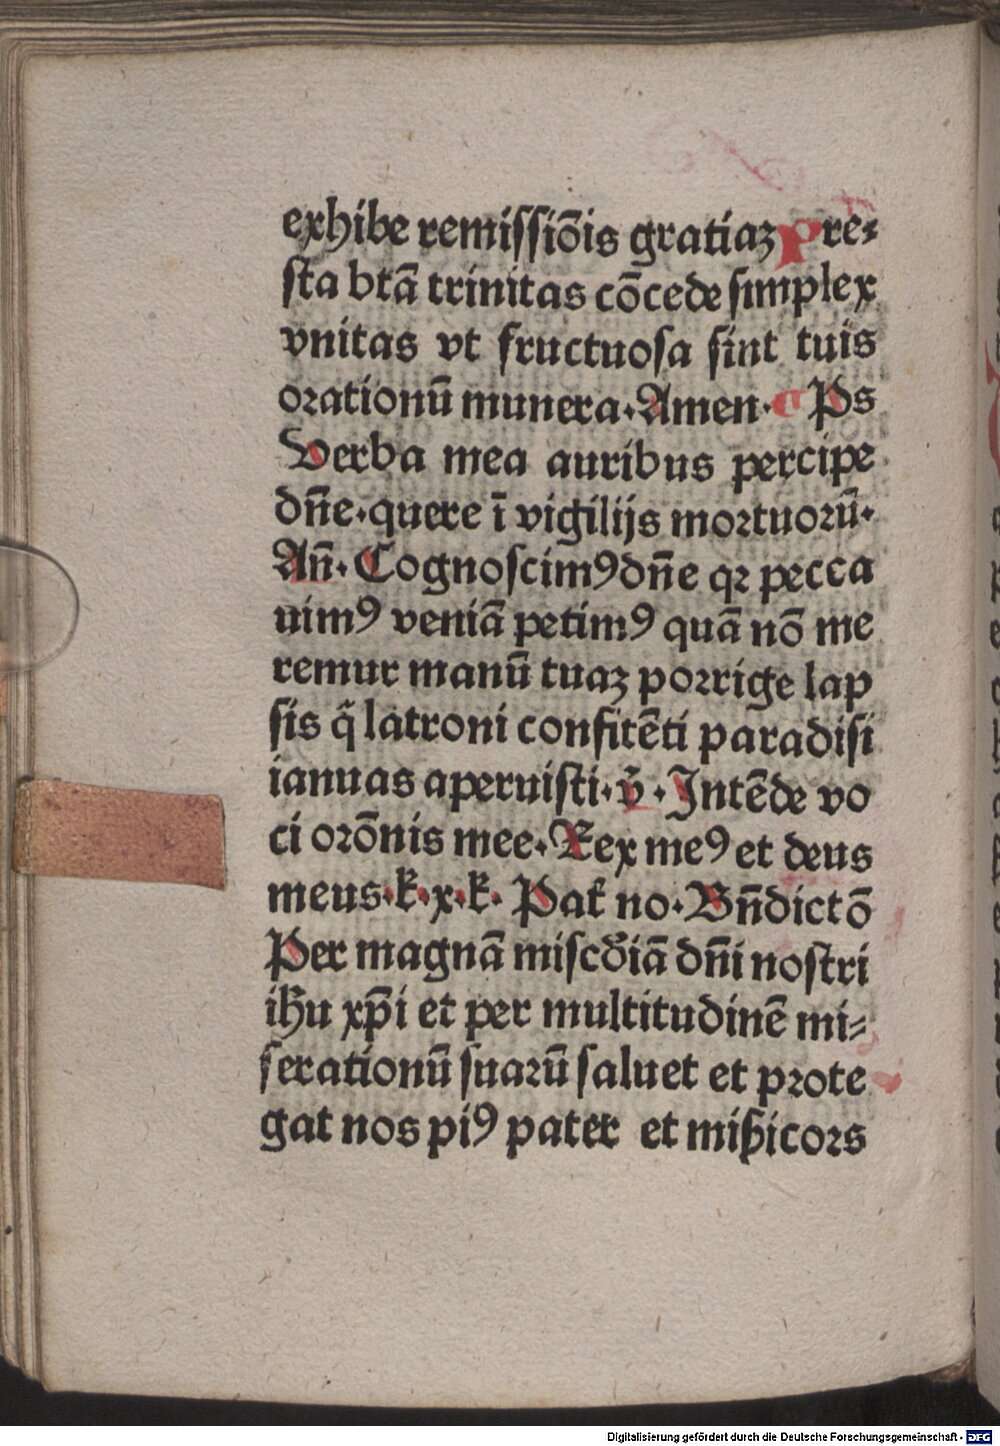 exhibe remissiōis gratiaꝫ Pre⸗
ſta btā trinitas cōcede ſimplex
vnitas vt fructuoſa ſint tuis
orationū munera. Amen. ¶ Ps
Verba mea auribus percipe
dn̄e. quere ī vigilijs mortuorū.
An̄. Cognoſcimꝰ dn̄e qꝛ pecca
uimꝰ veniā petimꝰ quā nō me
remur manū tuaꝫ porrige lap
ſis q̄ latroni confitēti paradiſi
ianuas aperuiſti. v̄. Intēde vo
ci orōnis mee. Rex meꝰ et deus
meus. k̄. x. k̄. Pat̄ no. Bn̄dictō
Per magnā miſcd̄iā dn̄i noſtri
ih̄u xp̄i et per multitudinē mi⸗
ſerationū ſuarū ſaluet et prote
gat nos piꝰ pater et miẜicors
Digitalisierung gefördert durch die Deutsche Forschungsgemeinschaft - DFG